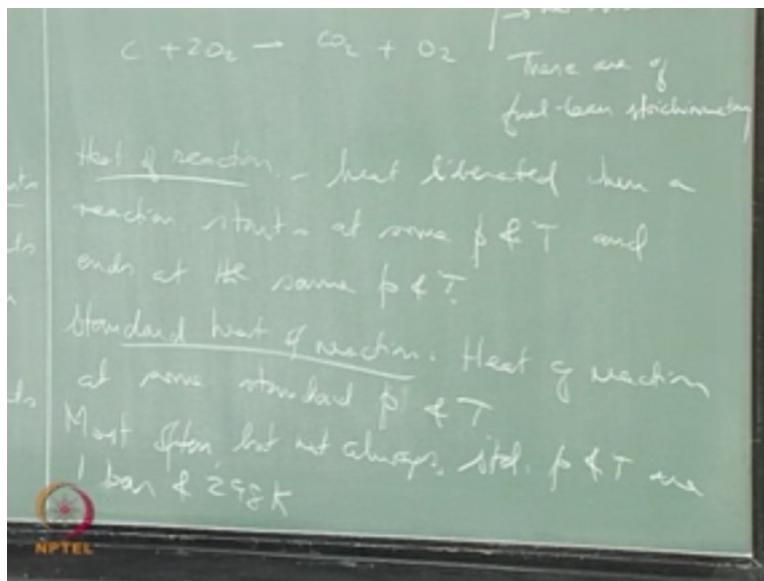 C + 2O₂ → CO₂ + O₂
There are of
fuel-lean stoichiometry
Heat of reaction - heat liberated when a
reaction starts at some p & T and
ends at the same p & T.
Standard heat of reaction. Heat of reaction
at some standard p & T
Most often but not always, std. p & T are
1 bar & 298K
NPTEL